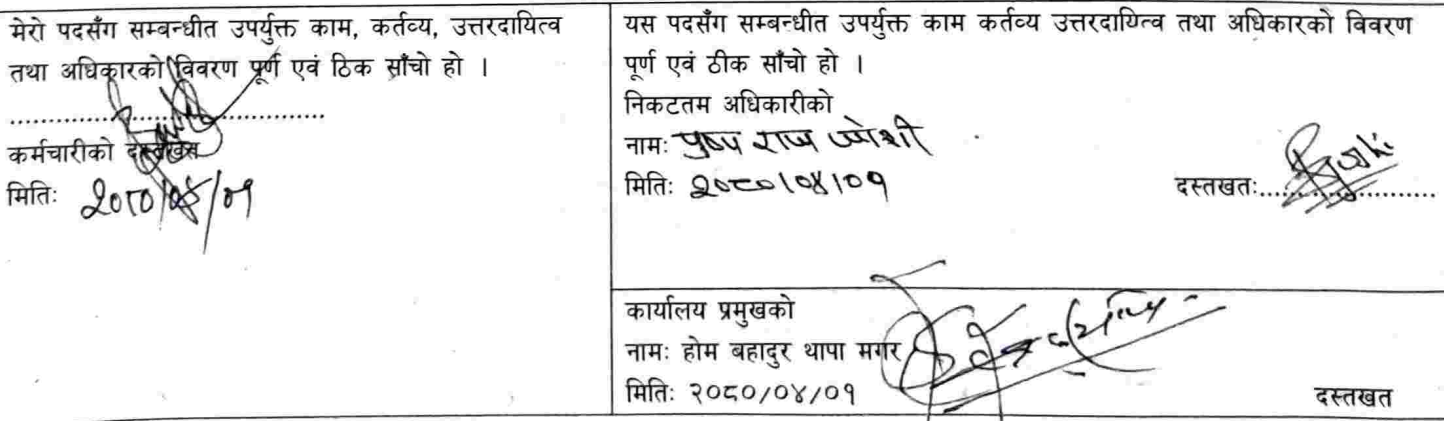 मेरो पदसँग सम्बन्धीत उपर्युक्त काम, कर्तव्य, उत्तरदायित्व
तथा अधिकारको विवरण पूर्ण एवं ठिक साँचो हो ।
................................
कर्मचारीको दस्तखत
मितिः २०८०/०४/०१
यस पदसँग सम्बन्धीत उपर्युक्त काम कर्तव्य उत्तरदायित्व तथा अधिकारको विवरण
पूर्ण एवं ठीक साँचो हो ।
निकटतम अधिकारीको
नामः पुष्प राज जोशी
मितिः २०८०/०४/०१
दस्तखतः........................
कार्यालय प्रमुखको
नामः होम बहादुर थापा मगर
मितिः २०८०/०४/०१
दस्तखत